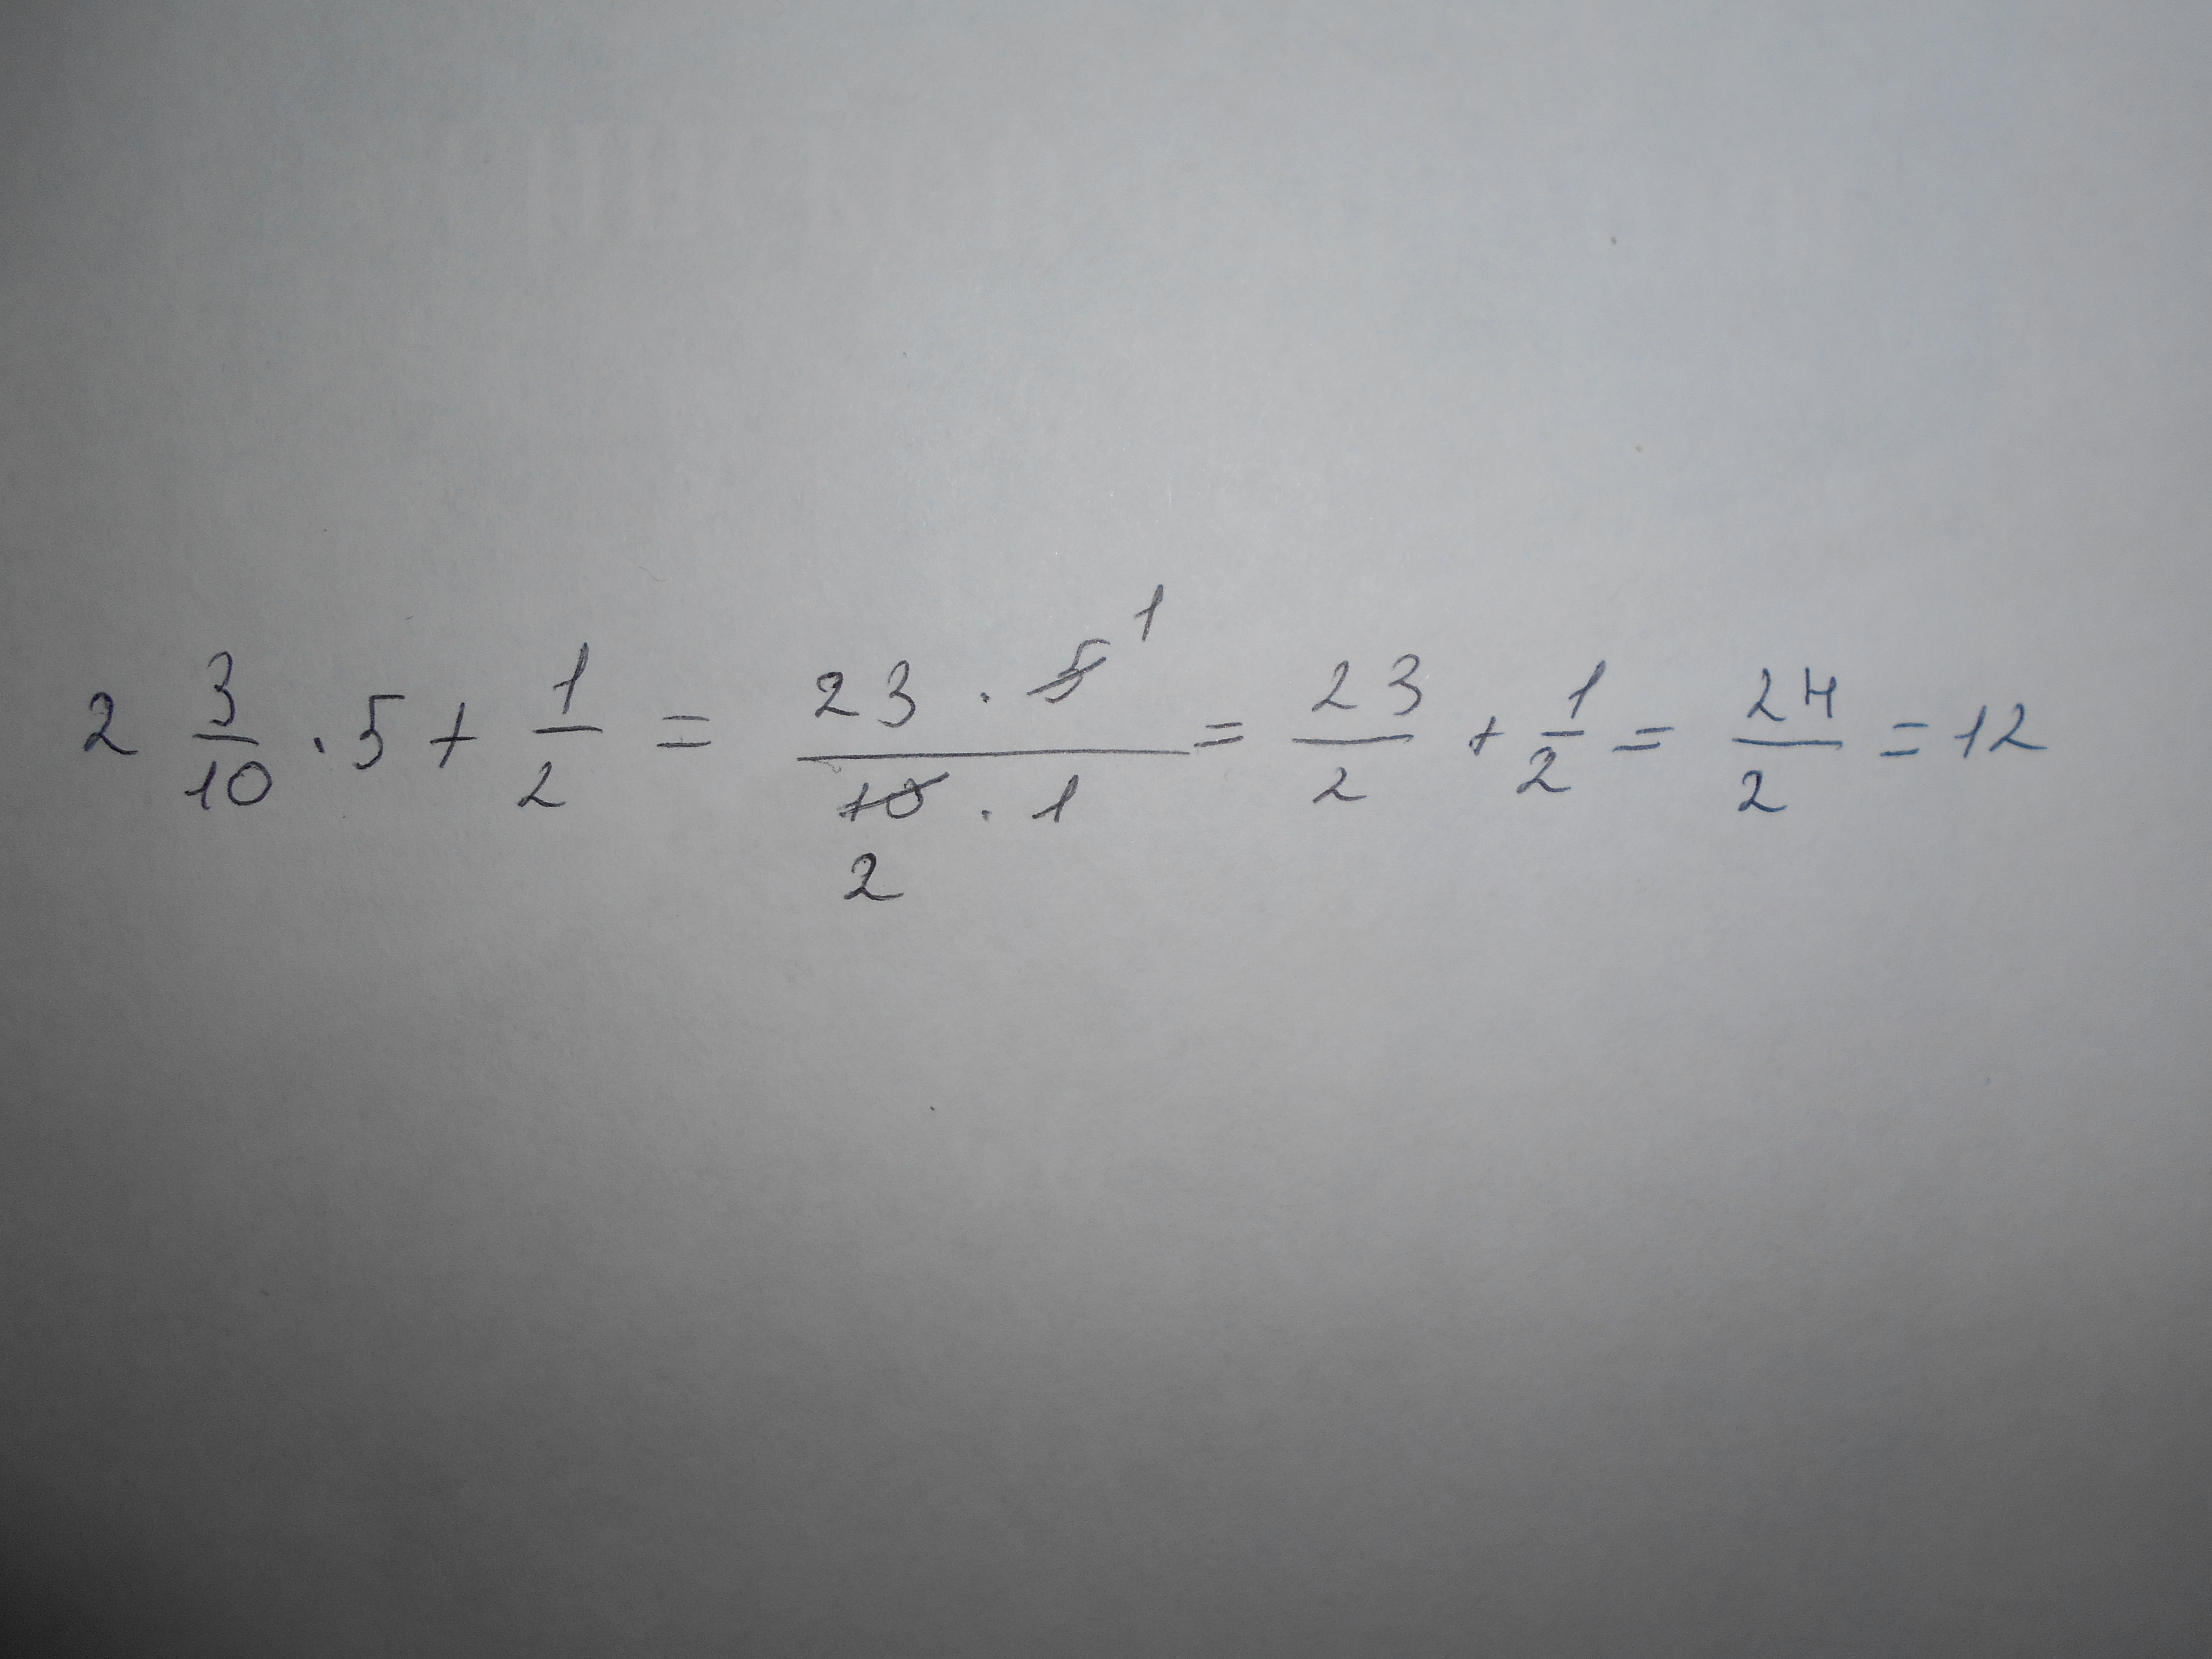 2 3/10 · 5 + 1/2 = 23 · 5 1 / 10 · 1 2 = 23/2 + 1/2 = 24/2 = 12